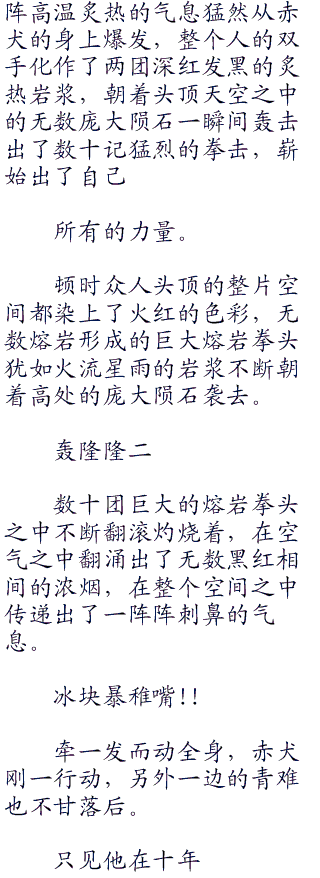 阵高温炙热的气息猛然从赤
犬的身上爆发，整个人的双
手化作了两团深红发黑的炙
热岩浆，朝着头顶天空之中
的无数庞大陨石一瞬间轰击
出了数十记猛烈的拳击，崭
始出了自己
所有的力量。
顿时众人头顶的整片空
间都染上了火红的色彩，无
数熔岩形成的巨大熔岩拳头
犹如火流星雨的岩浆不断朝
着高处的庞大陨石袭去。
轰隆隆二
数十团巨大的熔岩拳头
之中不断翻滚灼烧着，在空
气之中翻涌出了无数黑红相
间的浓烟，在整个空间之中
传递出了一阵阵刺鼻的气
息。
冰块暴稚嘴!!
牵一发而动全身，赤犬
刚一行动，另外一边的青难
也不甘落后。
只见他在十年